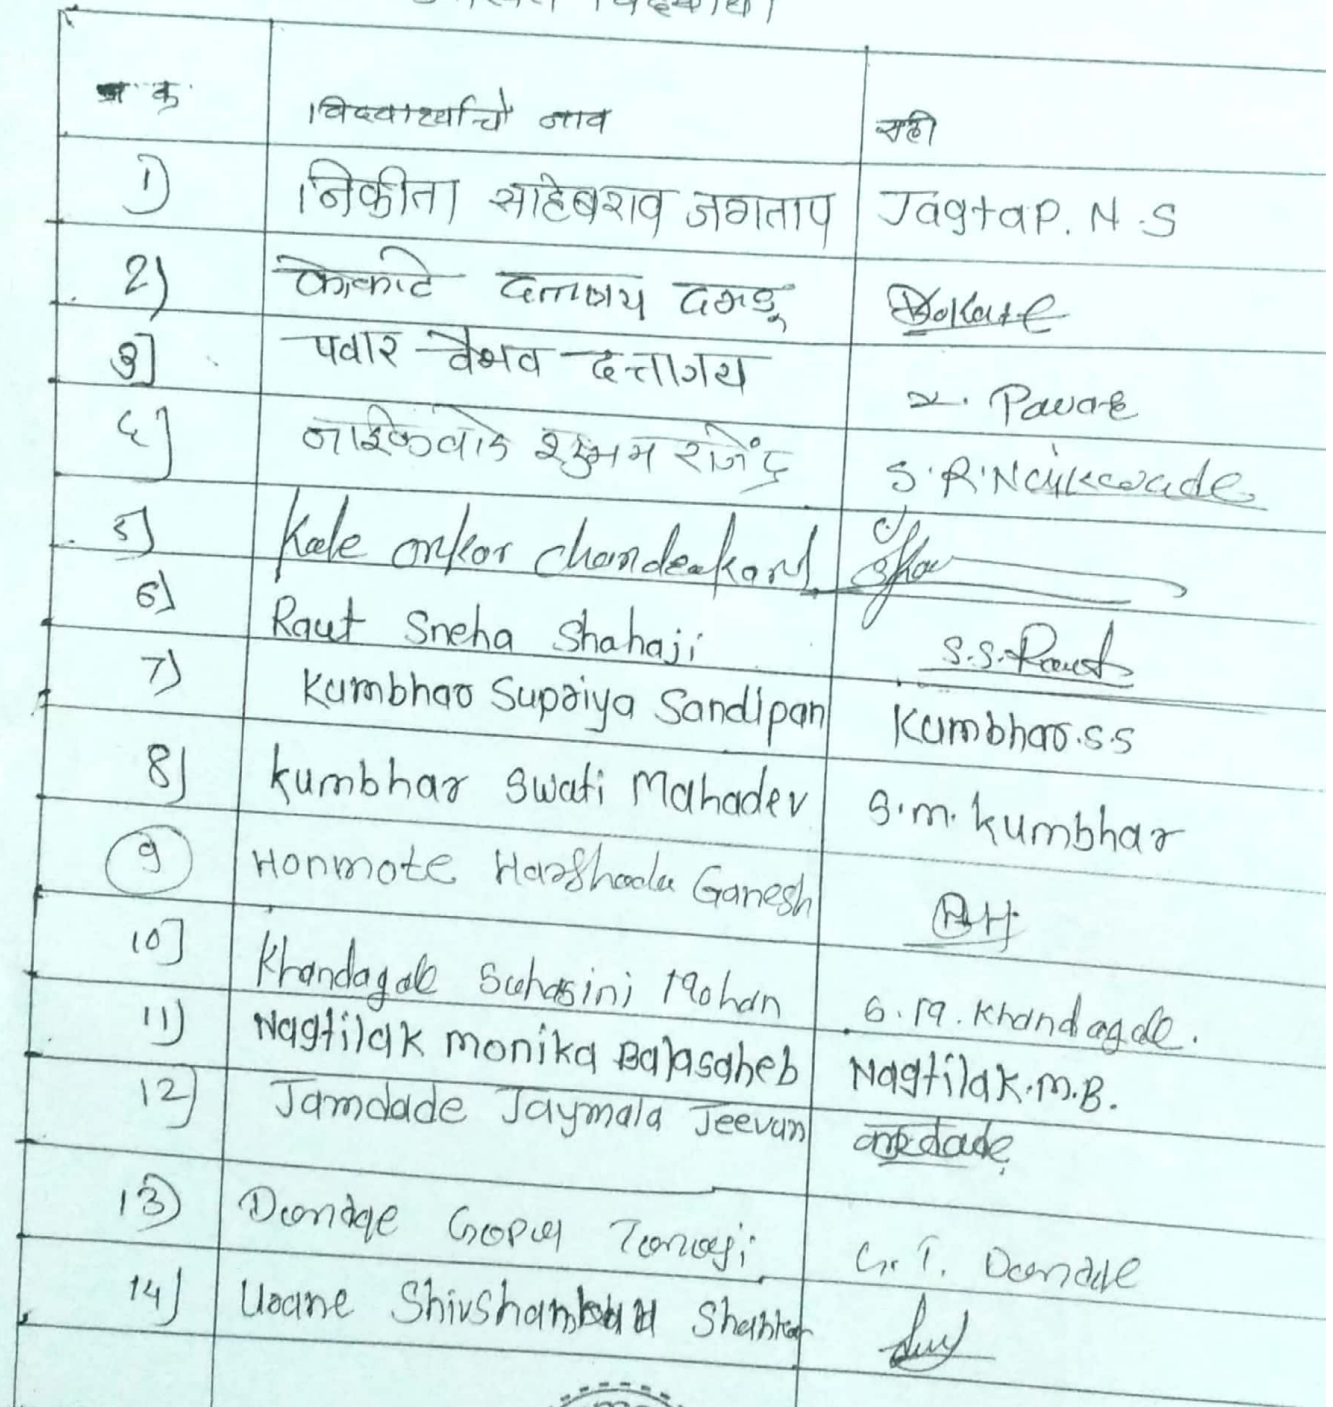 क्र
विद्यार्थ्याचे नाव
सही
1) निकीता साहेबराव जगताप Jagtap. N.S
2) कोकाटे दत्तात्रय दगडू Kokate
3] पवार वैभव दत्तात्रय Pawar
४] नाईकवाडे शुभम राजेंद्र S.R.Naikwade
5] Kale onkar chandrakant
6) Raut Sneha Shahaji S.S.Raut
7) Kumbhar Supriya Sandipan Kumbhar.S.S
8) kumbhar swati Mahadev S.m. kumbhar
9 Honmote Harshada Ganesh
10] Khandagale Suhasini Mohan S.M. Khandagale.
11) Nagtilak monika Balasaheb Nagtilak.m.B.
12) Jamdade Jaymala Jeevan
13) Gopal Tanaji G.T.
14)